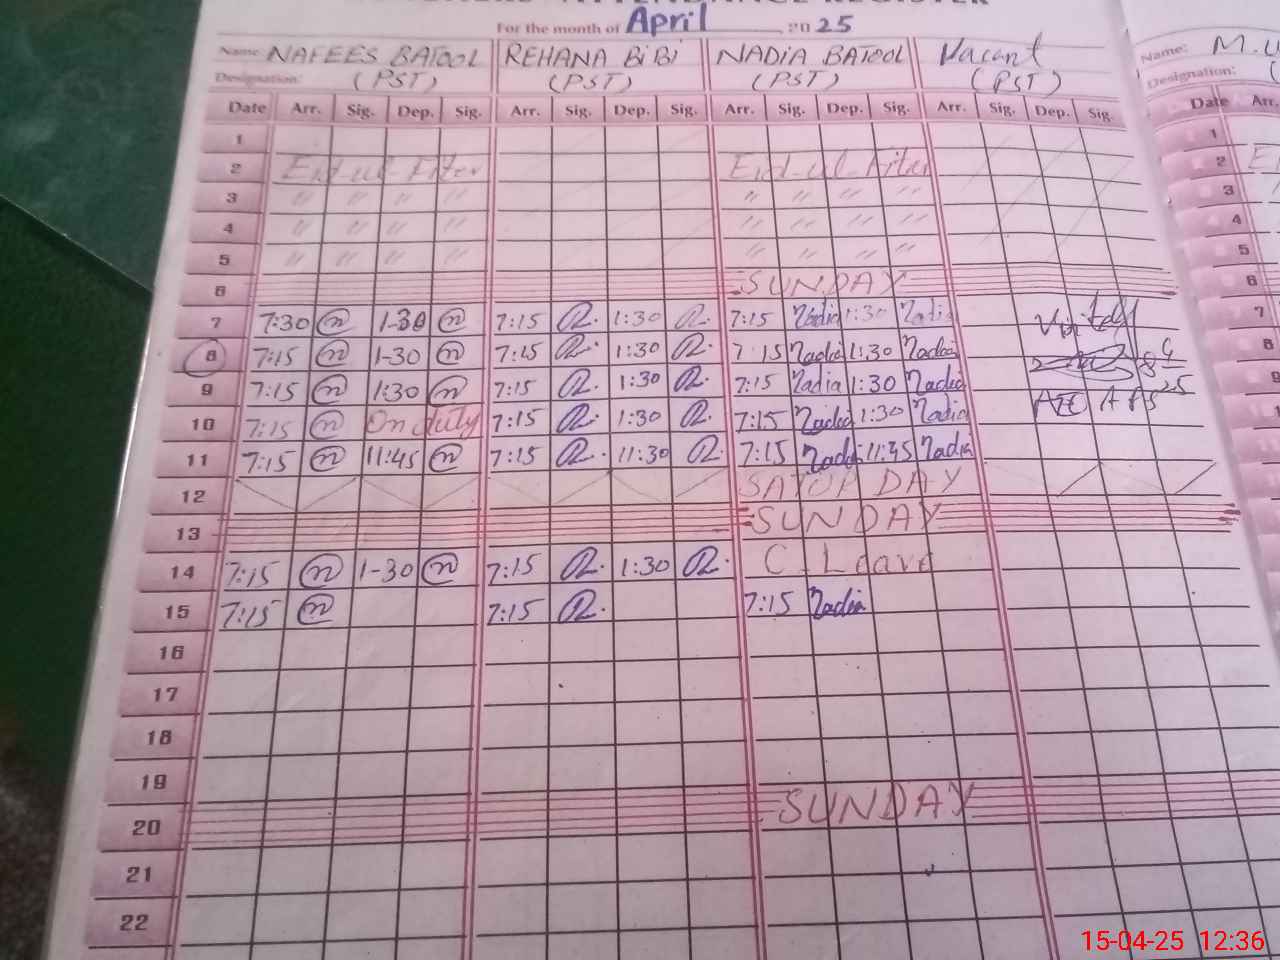 For the month of April 2025
Name: NAFEES BATOOL REHANA BiBi NADIA BATOOL Vacant Name:
Designation: (PST) (PST) (PST) (PST) Designation:
Date Arr. Sig. Dep. Sig. Arr. Sig. Dep. Sig. Arr. Sig. Dep. Sig. Arr. Sig. Dep. Sig. Date Arr.
1 1
2 Eid-ul-Fiter Eid-ul-Fiter 2
3 " " " " " " " " 3
4 " " " " " " " " 4
5 " " " " " " " " 5
6 SUNDAY 6
7 7:30 n 1-30 n 7:15 R. 1:30 R. 7:15 Nadia 1:30 Nadia 7
8 7:15 n 1-30 n 7:15 R. 1:30 R. 7 15 Nadia 1:30 Nadia 8
9 7:15 n 1:30 n 7:15 R. 1:30 R. 7:15 Nadia 1:30 Nadia 9
10 7:15 n On duty 7:15 R. 1:30 R. 7:15 Nadia 1:30 Nadia
11 7:15 n 11:45 n 7:15 R. 11:30 R. 7:15 Nadia 11:45 Nadia
12 SATUR DAY
13 SUNDAY
14 7:15 n 1-30 n 7:15 R. 1:30 R. C. Leave
15 7:15 n 7:15 R. 7:15 Nadia
16
17
18
19
20 SUNDAY
21
22
15-04-25 12:36